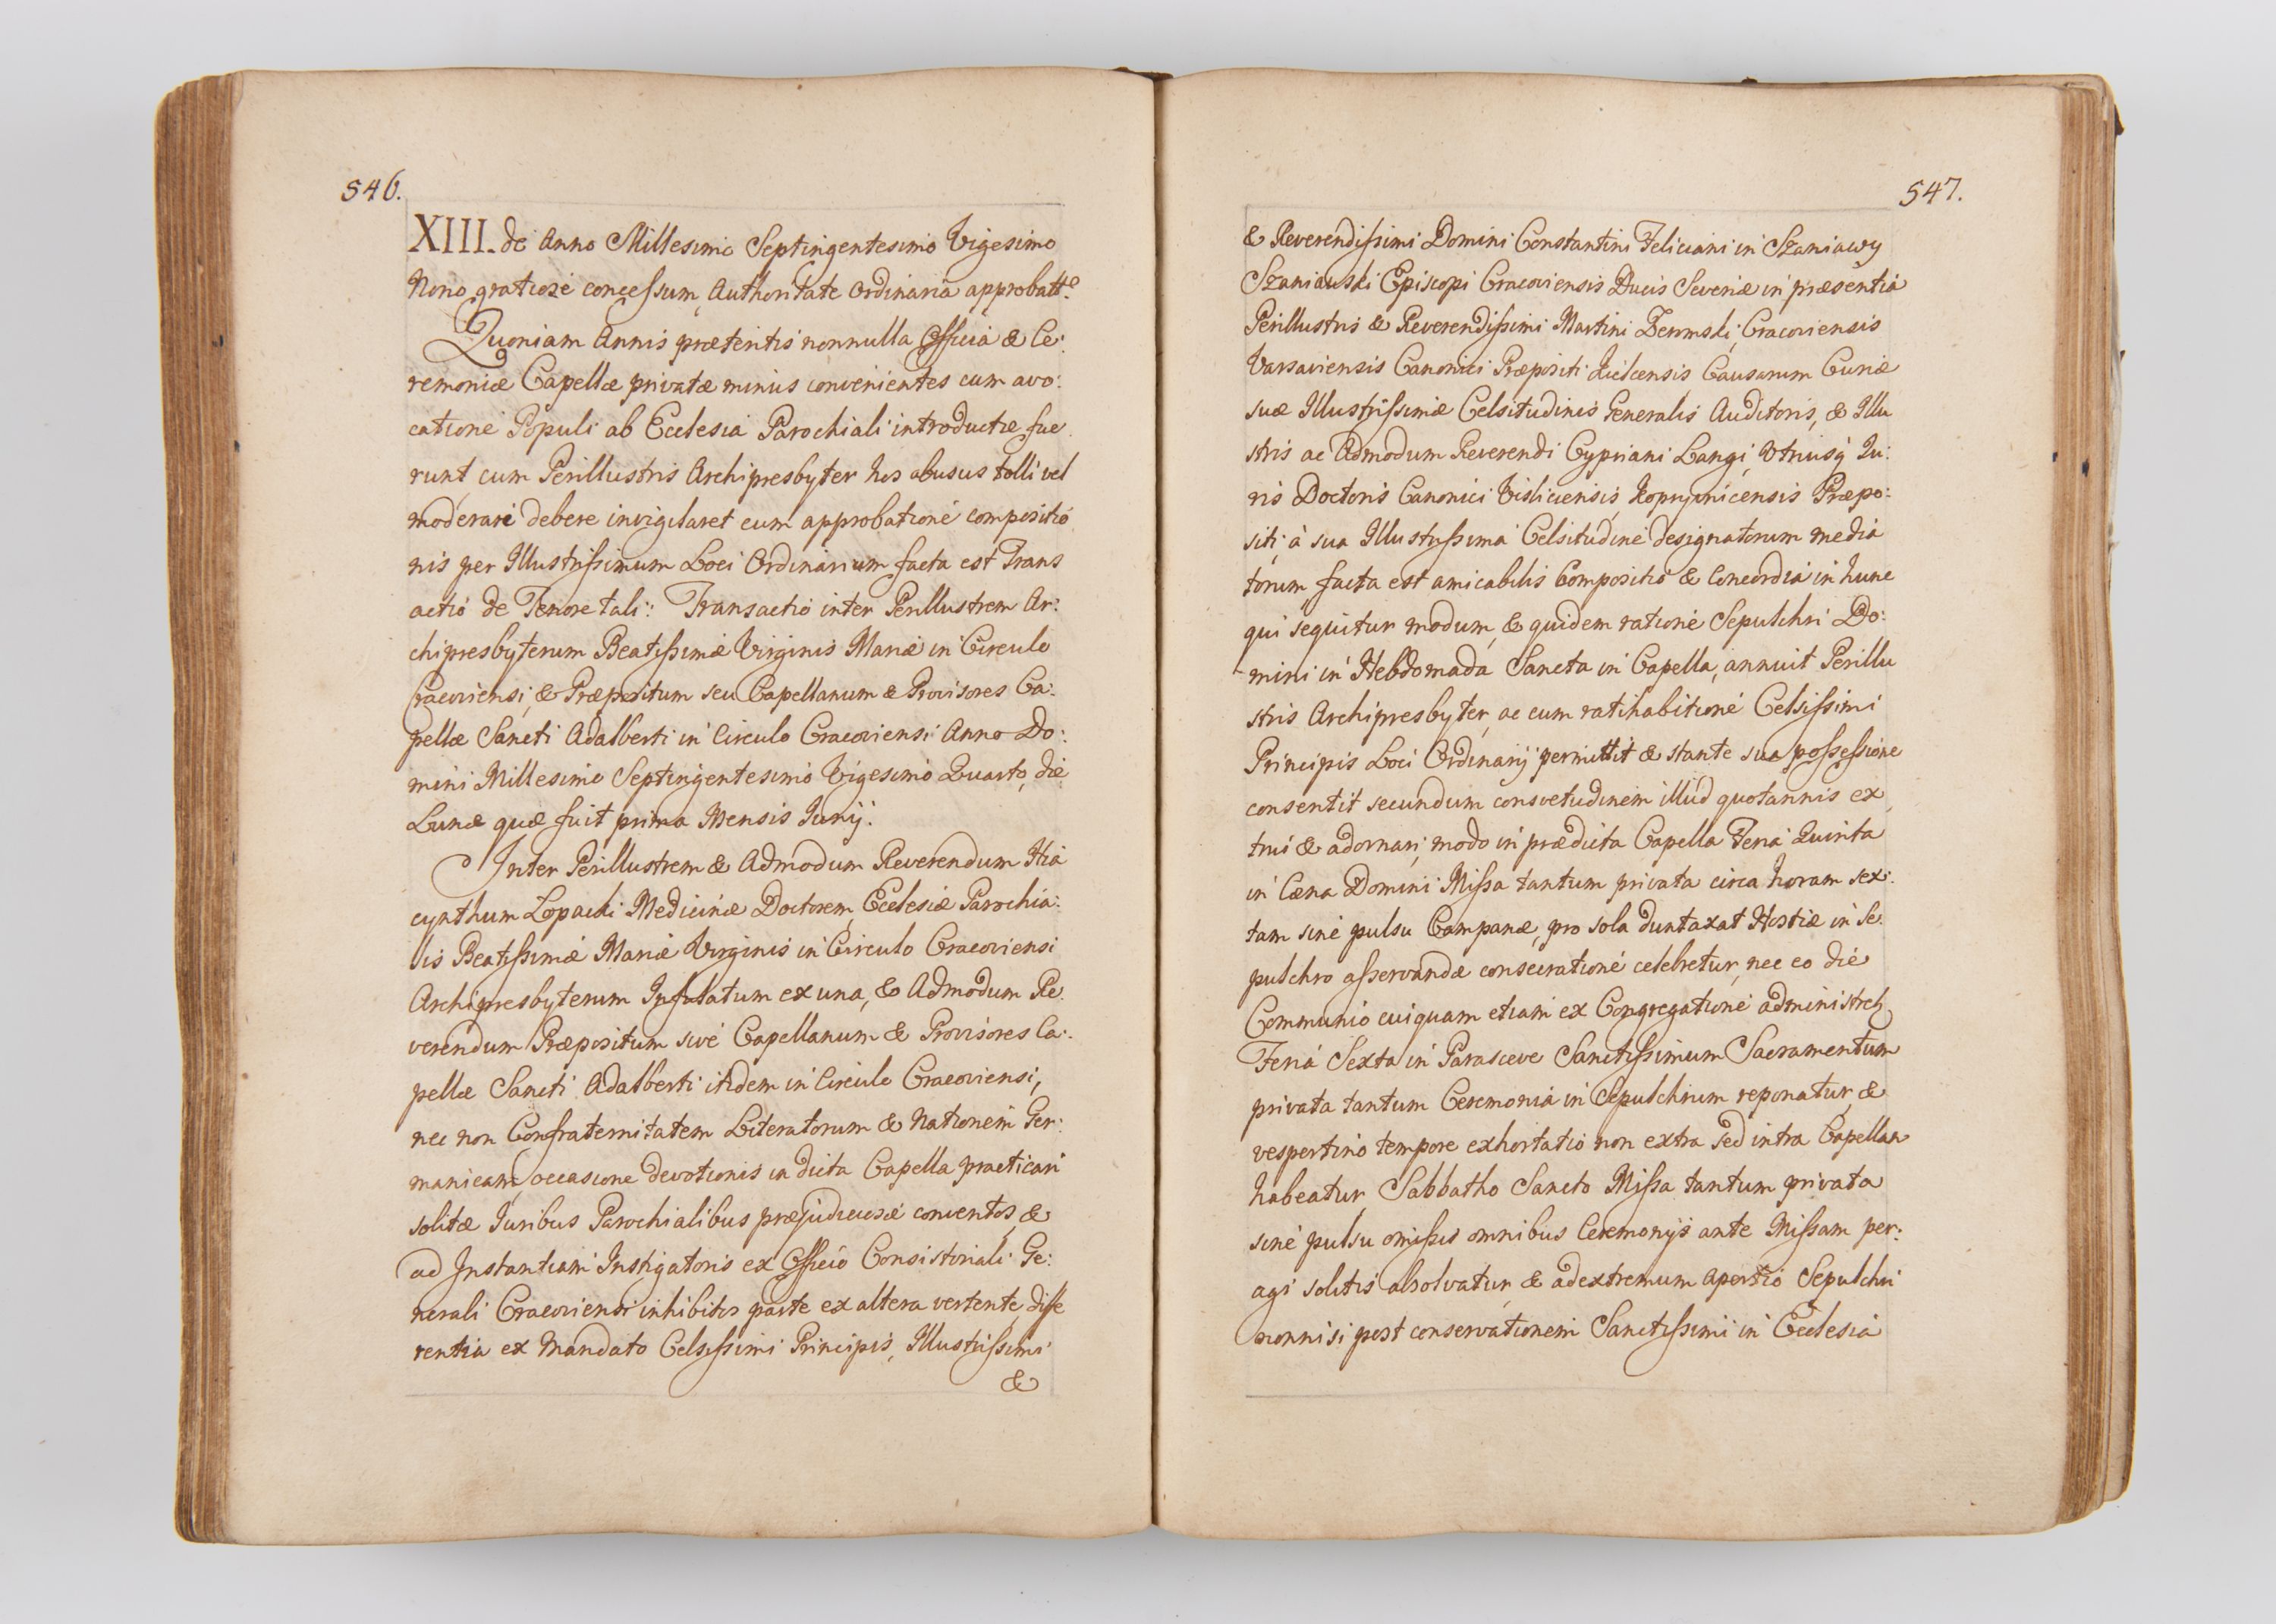 546.
XIII. de Anno Millesimo Septingentesimo Vigesimo
Nono gratiose concessum Authoritate Ordinaria approbatt.
Quoniam Annis prætentis nonnulla Officia & Ce:
remoniæ Capellæ privatæ minus convenientes cum avo:
catione Populi ab Ecclesia Parochiali introductæ fue
runt, cum Perillustris Archipresbyter hos abusus tolli vel
moderari debere invigilaret cum approbatione compositio
nis per Illustrissimum Loci Ordinarium facta est Trans
actio de Tenore tali: Transactio inter Perillustrem Ar:
chipresbyterum Beatissimæ Virginis Mariæ in Circulo
Cracoviensi, & Præpositum seu Capellanum & Provisores Ca:
pellæ Sancti Adalberti in Circulo Cracoviensi Anno Do:
mini Millesimo Septingentesimo Vigesimo Quarto, die
Lunæ quæ fuit prima Mensis Junij.
Inter Perillustrem & Admodum Reverendum Hia
cynthum Lopacki Medicinæ Doctorem, Ecclesiæ Parochia:
lis Beatissimæ Mariæ Virginis in Circulo Cracoviensi
Archipresbyterum Infulatum ex una, & Admodum Re
verendum Præpositum sive Capellanum & Provisores Ca:
pellæ Sancti Adalberti itidem in Circulo Cracoviensi,
nec non Confraternitatem Literatorum & Nationem Ger:
manicam, occasione devotionis in dicta Capella practicari
solitæ Juribus Parochialibus præjudiciosé conventos, &
ad Instantiam Instigatoris ex Officio Consistoriali Ge:
nerali Cracoviensi inhibitos parte ex altera vertente, diffe
rentia ex Mandato Celsissimi Principis, Illustrissimi
&
547.
& Reverendissimi Domini Constantini Feliciani in Szaniawy
Szaniawski Episcopi Cracoviensis Ducis Severiæ in præsentiá
Perillustris & Reverendissimi Martini Cracoviensis
Varsaviensis Canonici Præpositi Kielcensis Causarum Curiæ
suæ Illustrissimæ Celsitudinis Generalis Auditoris, & Illu
stris ac Admodum Reverendi Cypriani Langi, Utriusq Ju:
ris Doctoris Canonici Visliciensis, Koprzynicensis Præpo:
siti, á sua Illustrissima Celsitudine designatorum media
torum, facta est amicabilis Compositio & Concordia in hunc
qui sequitur modum, & quidem ratione Sepulchri Do:
mini in Hebdomada Sancta in Capella, annuit Perillu
stris Archipresbyter, ac cum ratihabitione Celsissimi
Principis Loci Ordinarij permittit & stante sua possessione
consentit secundum consvetudinem illud quotannis ex
trui & adornari, modo in prædicta Capella Feriá Quinta
in Cæna Domini Missa tantum privata circa horam sex:
tam sine pulsu Campanæ, pro sola duntaxat Hostiæ in Se:
pulchro asservandæ consecratione celebretur, nec eo die
Communio cuiquam etiam ex Congregatione administretur
Feriá Sexta in Parasceve Sanctissimum Sacramentum
privata tantum Ceremonia in Sepulchrum reponatur, &
vespertino tempore exhortatio non extra sed intra Capellam
habeatur, Sabbatho Sancto Missa tantum privata
sine pulsu omissis omnibus Ceremonijs ante Missam per:
agi solitis absolvatur, & ad extremum apertio Sepulchri
nonnisi post conservationem Sanctissimi in Ecclesia